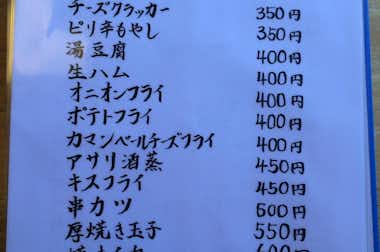 チーズクラッカー 350円
ピリ辛もやし 350円
湯豆腐 400円
生ハム 400円
オニオンフライ 400円
ポテトフライ 400円
カマンベールチーズフライ 400円
アサリ酒蒸 450円
キスフライ 450円
串カツ 500円
厚焼き玉子 550円